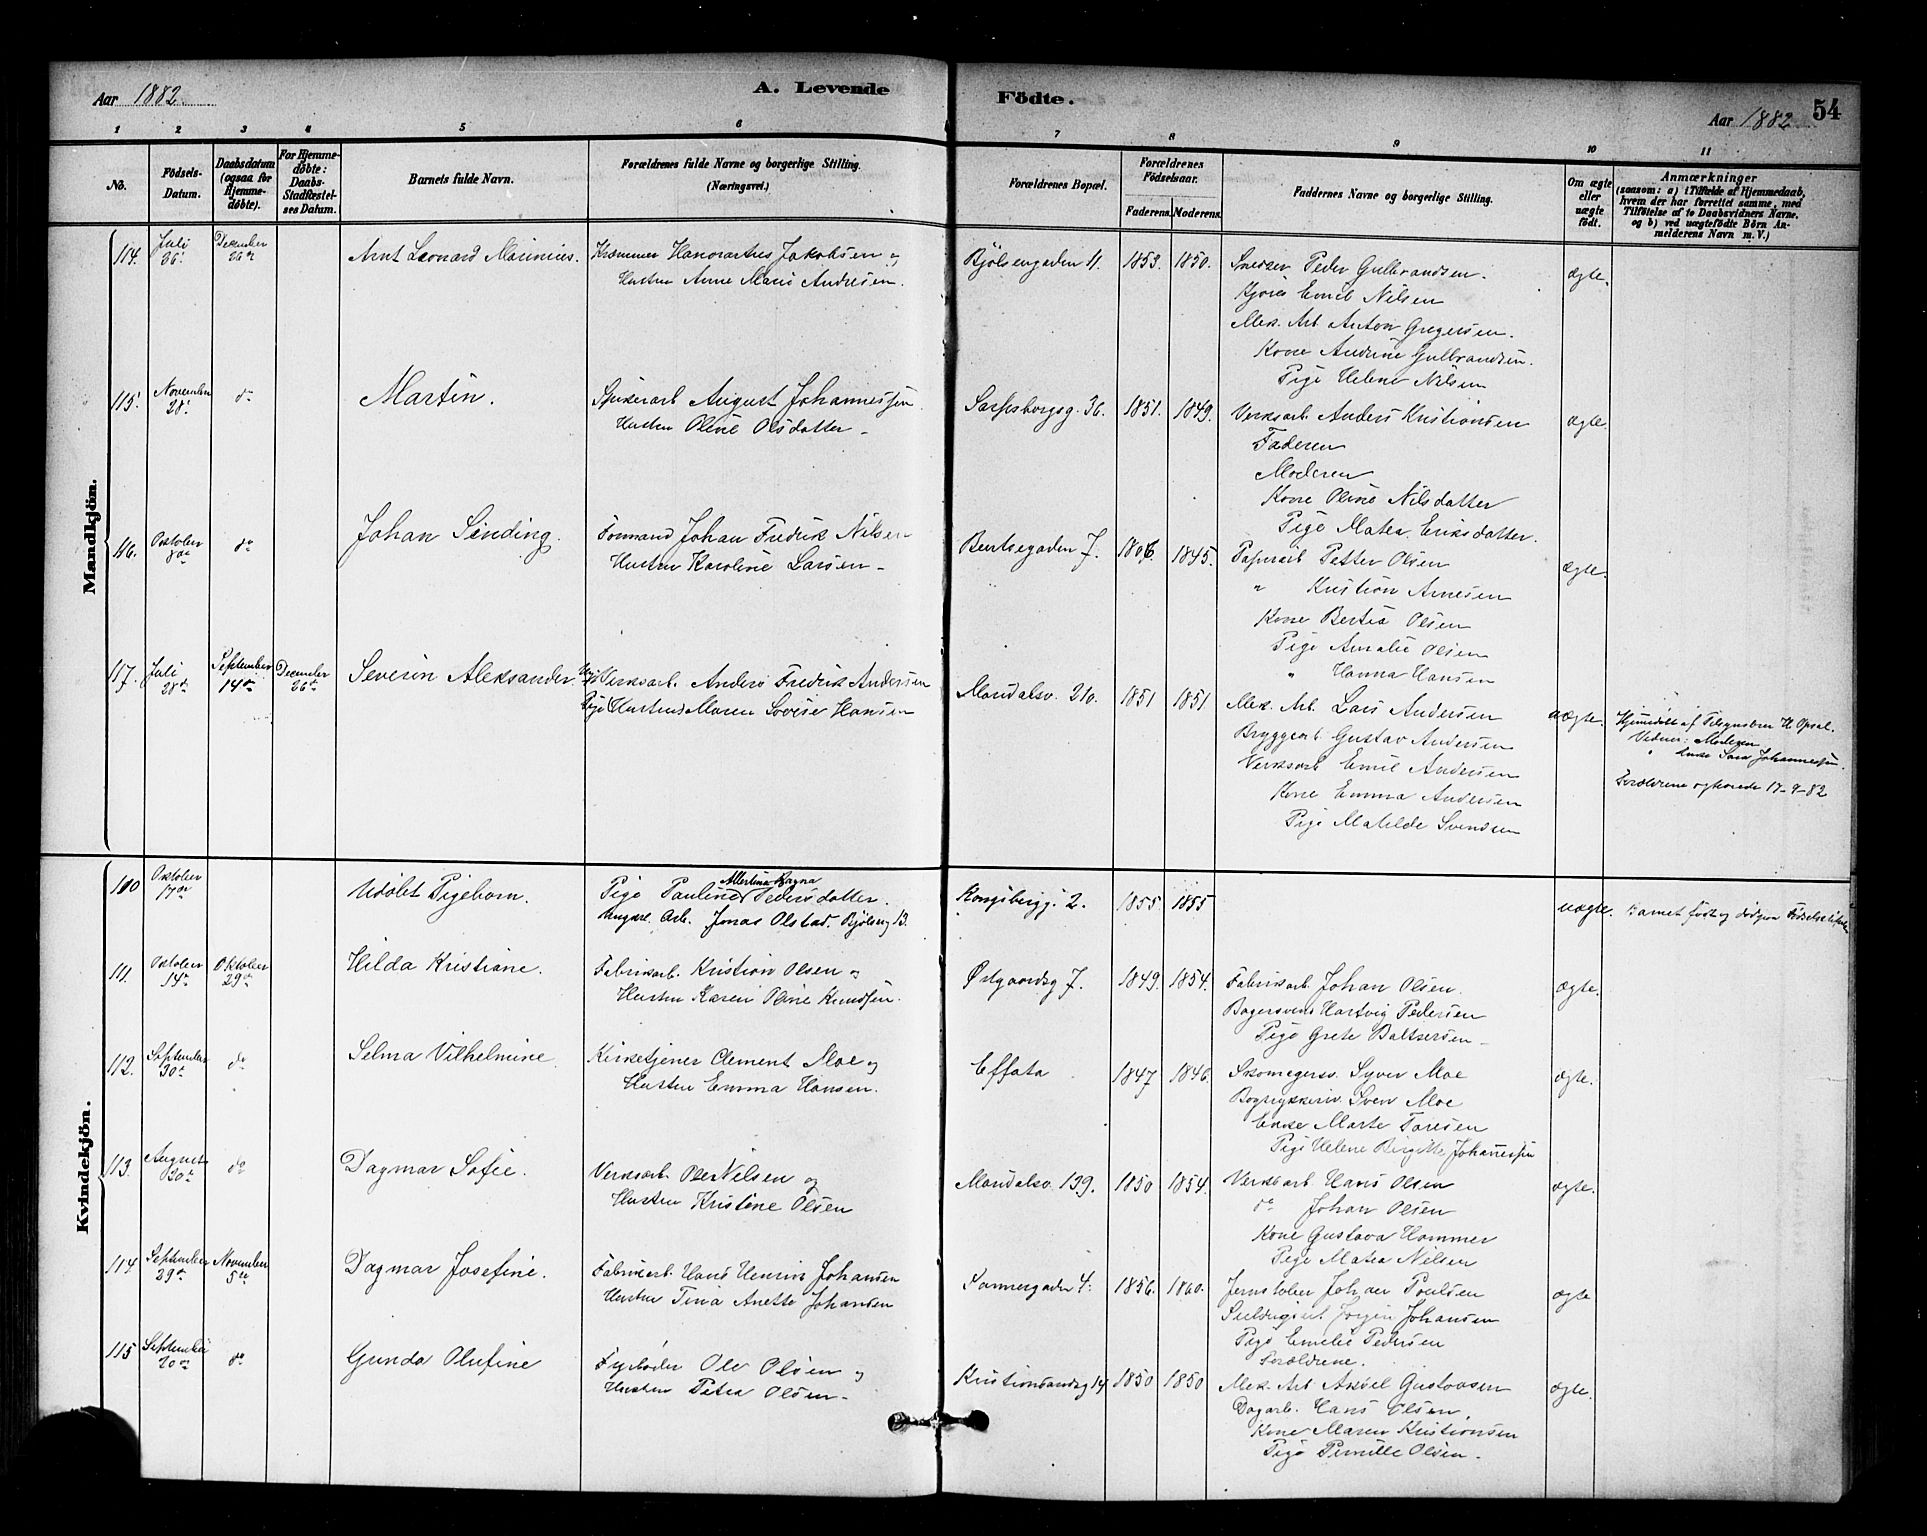 Aar 1882.
A. Levende
Födte.
Aar 1882
54
1 2 3 4 5 6 7 8 9 10 11
No.
Födsels-
Datum.
Daabsdatum
(ogsaa for
Hjemme-
døbte).
For Hjemme-
døbte:
Daabs-
Stadfæstel-
ses Datum.
Barnets fulde Navn.
Forældrenes fulde Navne og borgerlige Stilling.
(Næringsvei.)
Forældrenes Bopæl.
Forældrenes
Födselsaar.
Faderens. Moderens.
Faddernes Navne og borgerlige Stilling.
Om ægte
eller
uægte
født.
Anmærkninger
(saasom: a) i Tilfælde af Hjemmedaab,
hvem der har forrettet samme, med
Tilføielse af to Daabsvidners Navne,
og b) ved uægtefødte Børn An-
melderens Navn m. V.)
Mandkjön.
114. Juli 26. December 26de Arnt Leonard Marinius. Kræmmer Jakobsen og
Hustru Anne Marie Andresen.
Bjølsengaden 11. 1853. 1850. Snedker Peder Gulbrandsen. ægte.
Emil Nilsen
Mek. Arb. Anton Gregersen.
Kone Andrine Gulbrandsen.
Pige Helene Nilsen
115. November 28. do Martin. Spikerarb. August Johannessen
Hustru Oline Olsdatter
Sarpsborgsg. 36. 1851. 1849. Verksarb. Anders Kristiansen ægte.
Faderen
Moderen
Kone Oline Nilsdatter
Pige Matea Eriksdatter.
116. Oktober do Johan Sinding. Formand Johan Fredrik Nilsen
Hustru Karoline Larsen
Bentsegaden 7. 1845. Papirarb Petter Olsen ægte.
" Kristian Arnesen
Kone Bertea Olsen
Pige Amalie Olsen
" Hanna Hansen
117. Juli 28de September 14de December 26de Severin Aleksander. Verksarb. Anders Fredrik Andersen
Pige Maren Lovise Hansen
Maridalsv. 210. 1851 1851. Mek. Arb. Lars Andersen uægte.
Bryggearb Gustav Andersen
Verksarb Emil Andersen
Kone Emma Andersen
Pige Matilde Svendsen
Hjemmedøbt af H. Opsal.
Vidner: Moderen
" Enke Sara Johannessen.
Forældrene ægteviede 17-9-82
Kvindekjön.
110 Oktober 17de Udøbt Pigebarn. Pige Pauline Albertine Ragna Pedersdatter.
Ungkarl Arb. Jonas Olstad. Bjølseng 13.
Kongsbergg. 2. 1855 1855 uægte. Barnet født og dødt
111. Oktober 14de Oktober 29de Hilda Kristiane. Fabrikarb. Kristian Olsen og
Hustru Karen Oline Knudsen.
Østgaardsg 7. 1849. 1854. Fabrikarb Johan Olsen. ægte.
Bagersvend Hartvig Pedersen
Pige Grete Baltsersen
112. September 30te do Selma Vilhelmine. Kirketjener Clement Moe og
Hustru Emma Hansen.
Effata 1847 1846. Skomagersv. Syver Moe ægte.
Sven Moe
Enke Marte Toresen
Pige Helene Birgitte Johannessen
113. August do Dagmar Sofie. Verksarb Ole Nilsen og
Hustru Kristine Olsen
Maridalsv. 139. 1850 1854. Verksarb Hans Olsen ægte.
do Johan Olsen
Kone Gustava Hammer
Pige Matea Nilsen
114 September 29de November 5te Dagmar Josefine. Fabrikarb. Hans Henrik Johansen
Hustru Tina Anette Johansen
4. 1856. 1860. Jernstøber Johan Poulsen ægte
Jørgen Johansen
Pige Emelie Pedersen
Forældrene.
115 September 20de do Gunda Olufine Fyrbøder Ole Olsen og
Hustru Petra Olsen
Kristiansandsg 14 1850 1850 Mek. Arb Aksel Gustavsen ægte.
Dagarb. Hans Olsen
Kone Maren Kristiansen
Pige Pernille Olsen.